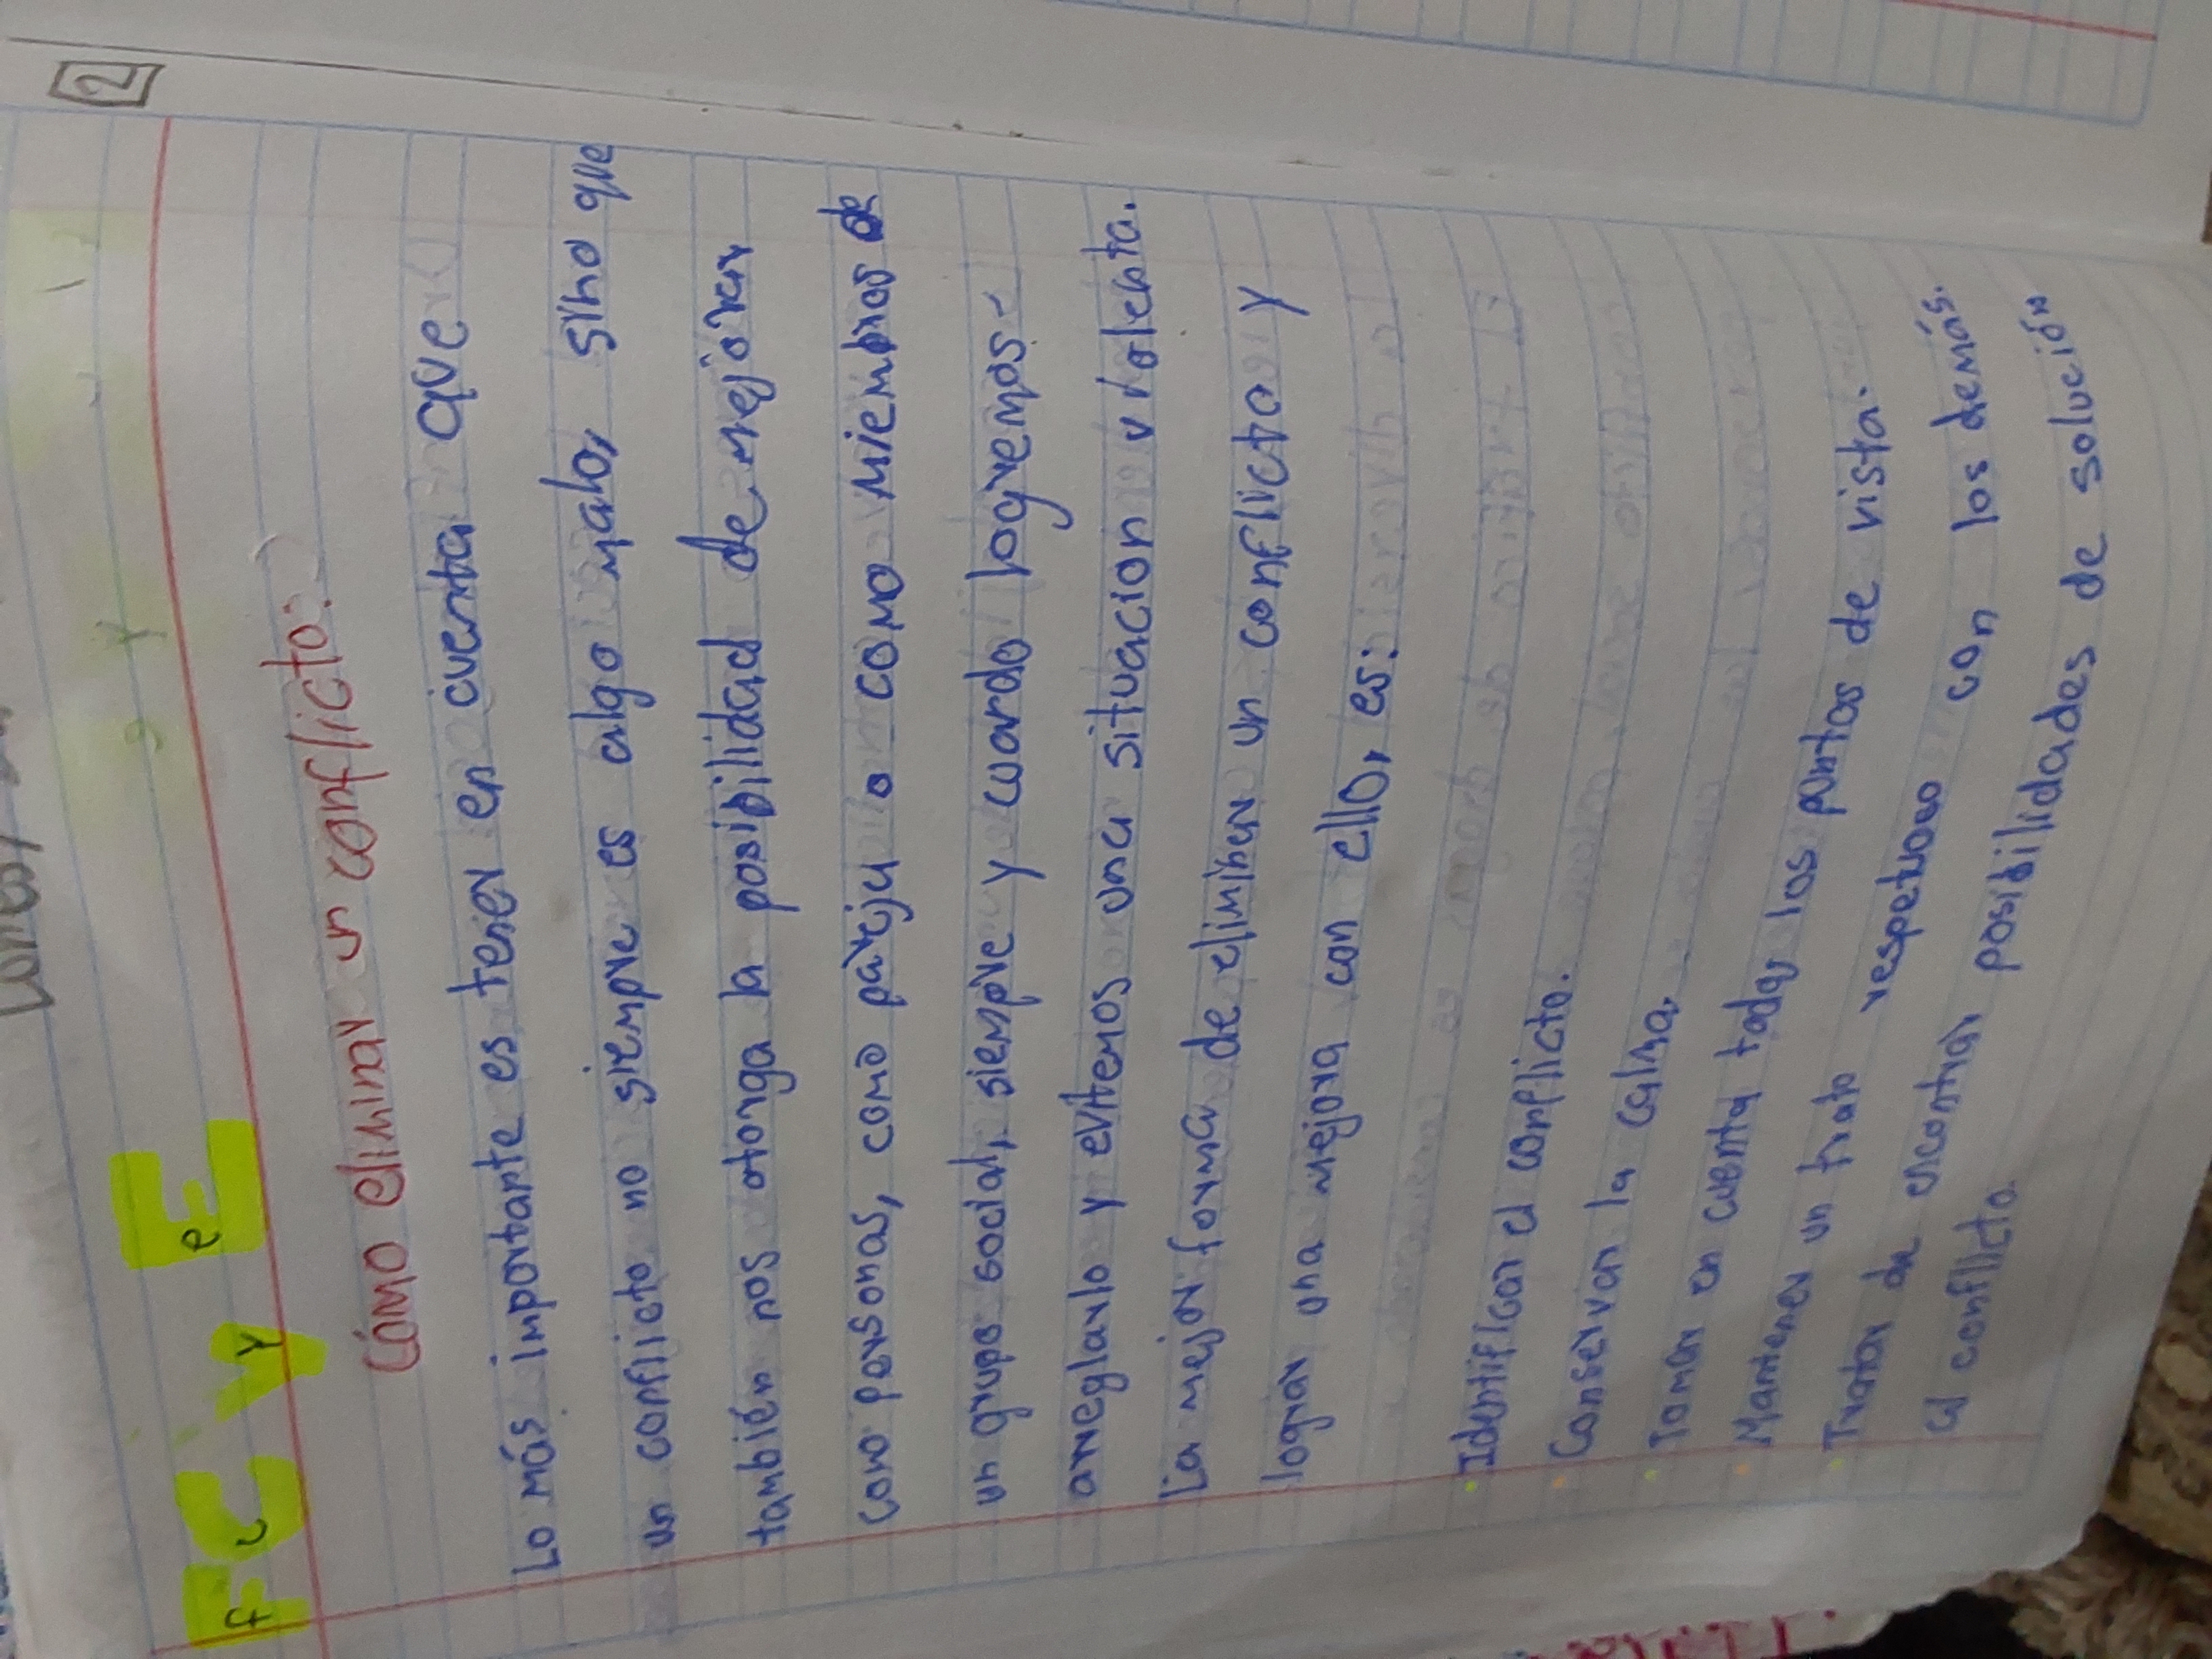 2
F C y E
f c y e
Cómo eliminar un conflicto:
Lo más importante es tener en cuenta que
un conflicto no siempre es algo malo, sino que
también nos otorga la posibilidad de mejorar
como personas, como pareja o como miembros de
un grupo social, siempre y cuando logremos
arreglarlo y evitemos una situacion violenta.
La mejor forma de eliminar un conflicto y
lograr una mejora con ello, es:
· Identificar el conflicto.
· Conservar la calma.
· Tomar en cuenta todos los puntos de vista.
· Mantener un trato respetuoso con los demás.
· Tratar de encontrar posibilidades de solución
al conflicto.